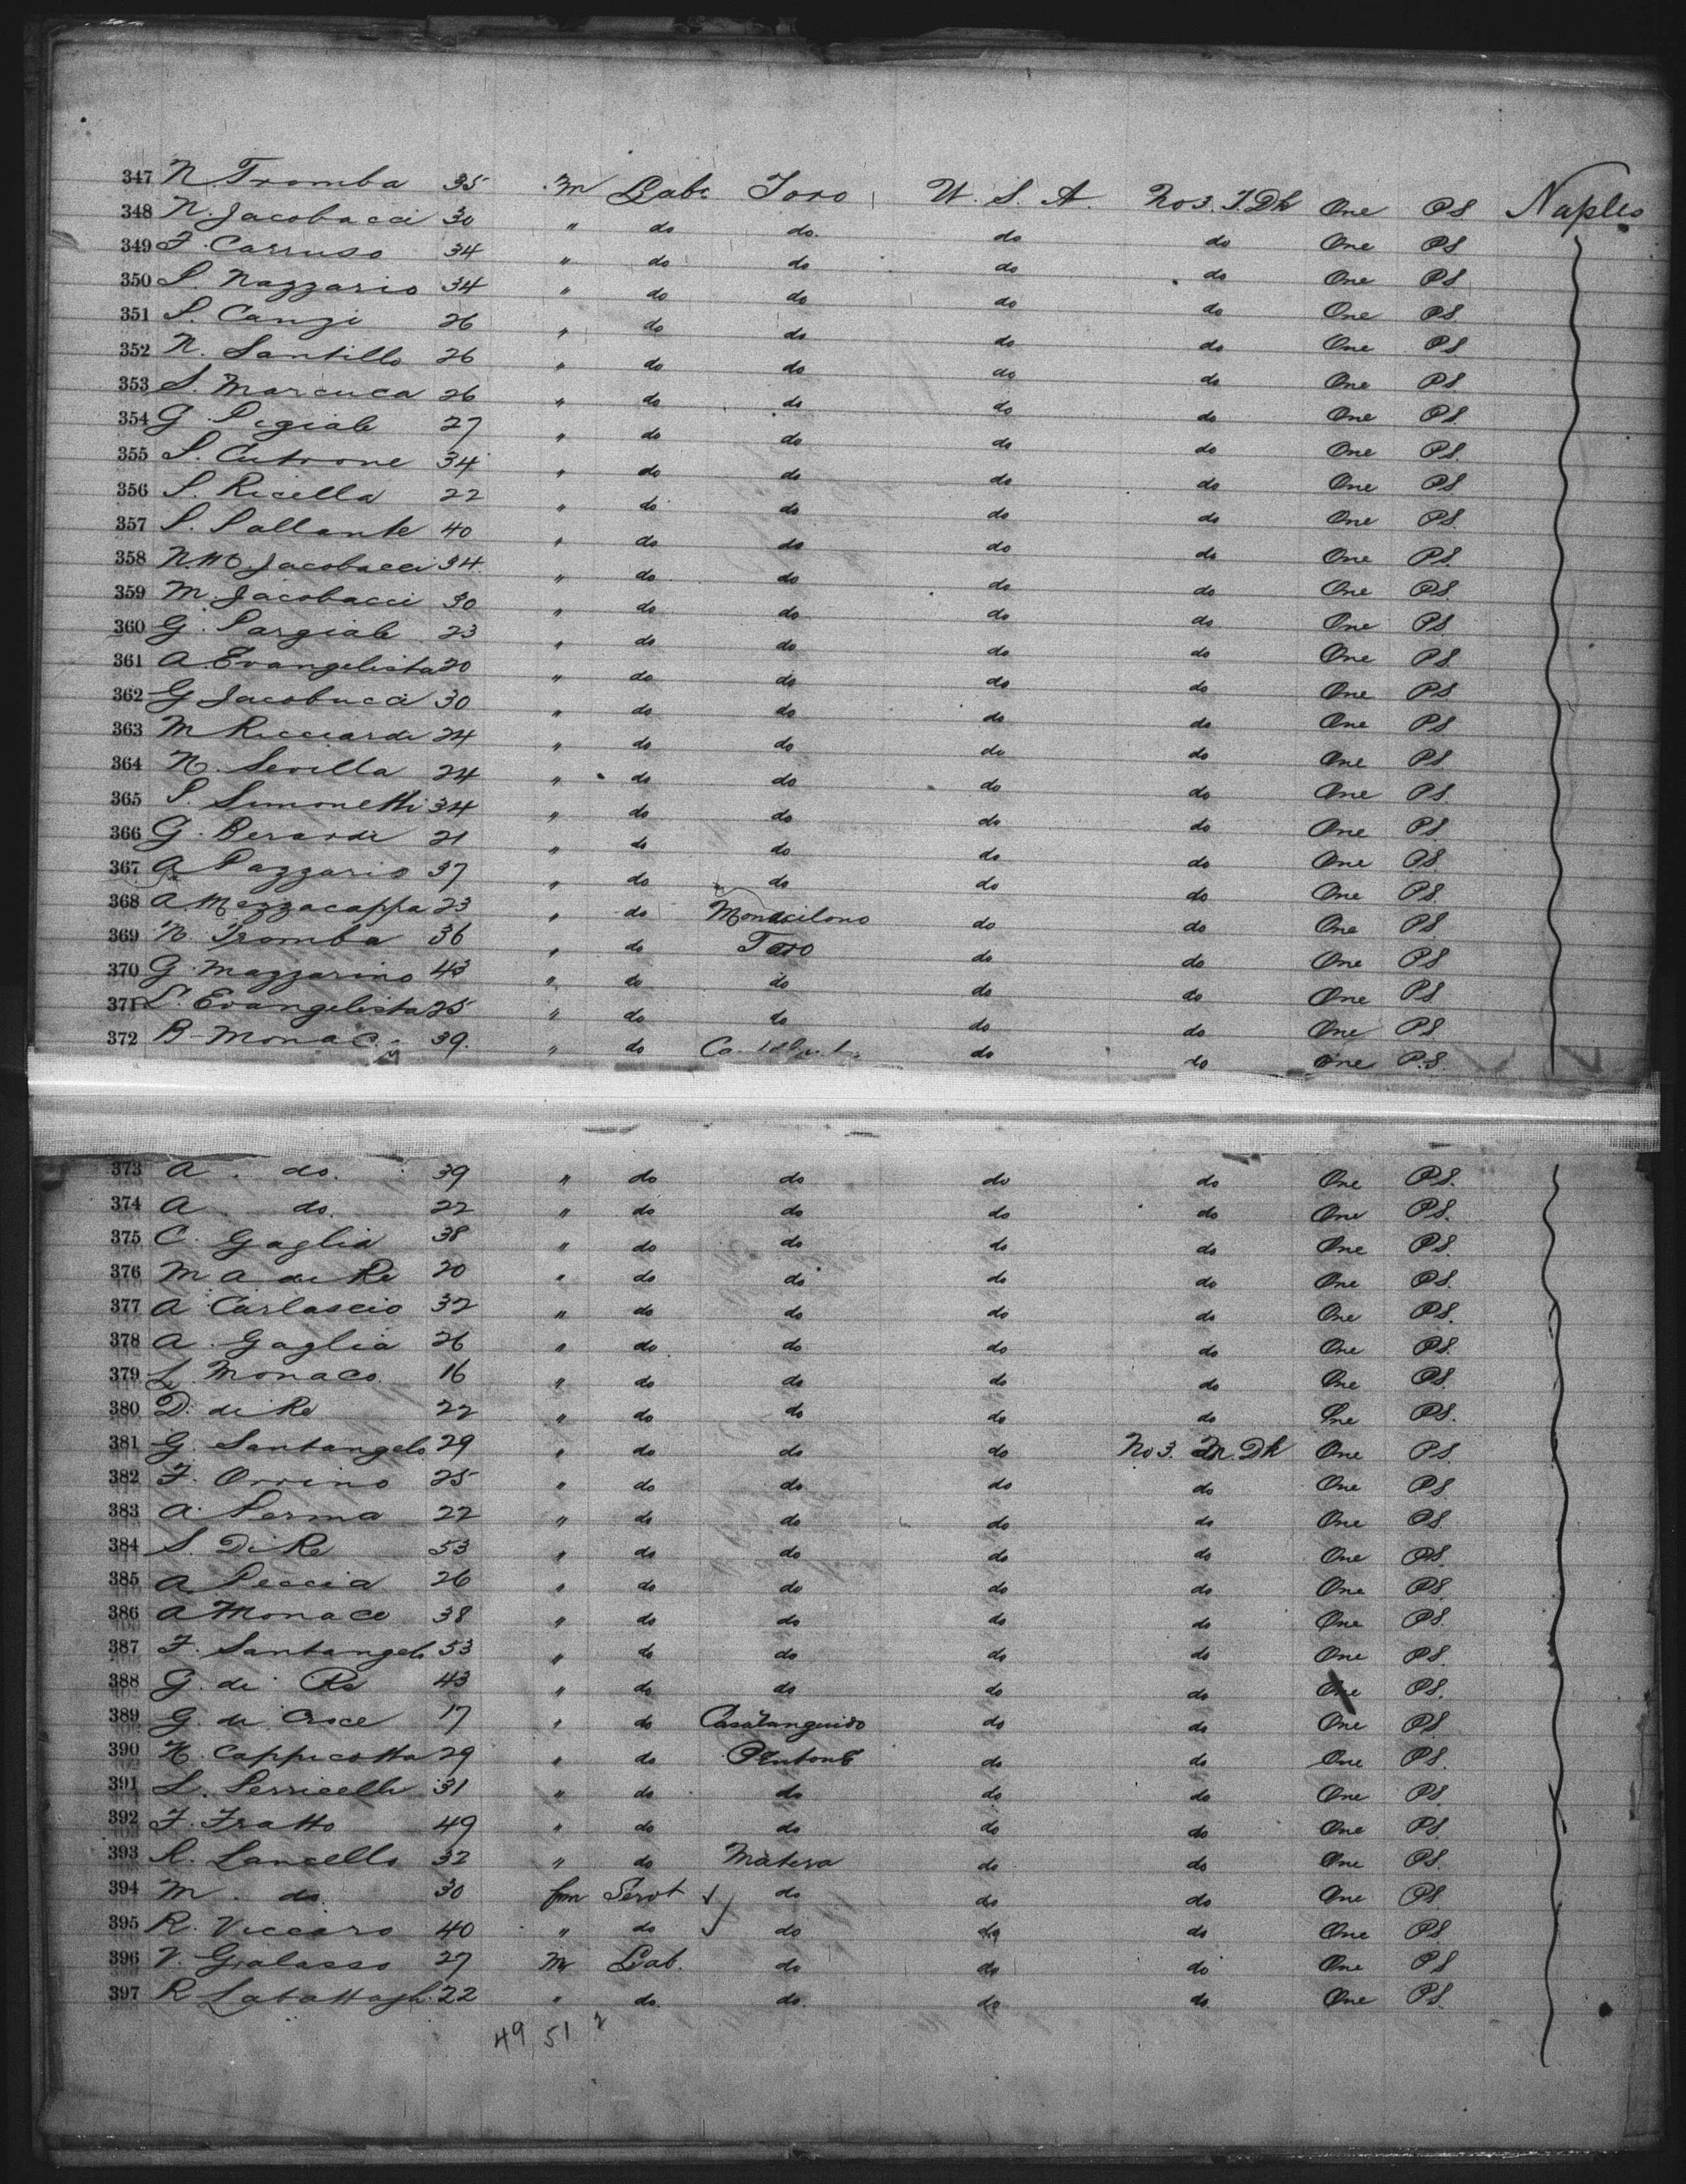 347 N. Tromba 35 m Labr Toro U. S. A. No 3. T. Dk One PS Naples
348 N. Jacobacci 30 " do do. do do One PS
349 F. Carruso 34 " do do do do One PS
350 S. Nazzario 34 " do do do do One PS
351 S. Canzi 26 " do do do do One PS
352 N. Santillo 26 " do do do do One PS
353 S. Marcuca 26 " do do do do One PS.
354 G. Pegiale 27 " do do do do One PS.
355 S. Cutrone 34 " do do do do One PS
356 S. Ricella 22 " do do do do One PS.
357 S. Sallante 40 " do do do do One PS.
358 N. M. Jacobacci 34. " do do do do One PS
359 M. Jacobacci 30 " do do do do One PS
360 G. Pargiale 23 " do do do do One PS
361 A Evangelista 20 " do do do do One PS
362 G Jacobucci 30 " do do do do One PS
363 M Ricciardi 24 " do do do do One PS
364 N. Sevilla 24 " do do do do One PS
365 P. Simonetti 34 " do do do do One PS
366 G. Berardi 21 " do do do do One PS.
367 A Pazzario 37 " do do do do One PS.
368 A. Mezzacappa 23 " do Monacilono do do One PS
369 N. Tromba 36 " do Toro do do One PS
370 G. Mazzarino 43 " do do do do One PS.
371 L. Evangelista 25 " do do do do One PS
372 B. Monaco 39. " do do do One P.S.
373 A. do. 39 " do do do do One PS.
374 A. do. 22 " do do do do One PS.
375 C. Gaglia 38 " do do do do One PS.
376 M A di Re 20 " do do do do One PS.
377 A Carlascio 32 " do do do do One PS.
378 A. Gaglia 26 " do do do do One PS.
379 L. Monaco 16 " do do do do One PS.
380 D. di Re 22 " do do do do One PS.
381 G. Santangelo 29 " do do do No 3. M. Dk One PS.
382 F. Orrino 25 " do do do do One PS.
383 A. Perma 22 " do do do do One PS.
384 S. Di Re 53 " do do do do One PS.
385 A Peccia 26 " do do do do One PS.
386 A Monaco 38 " do do do do One PS.
387 F. Santangelo 53 " do do do do One PS.
388 G. di Re 43 " do do do do One PS.
389 G. di Croce 17 " do Casalanguido do do One PS
390 N. Cappicotta 29 " do Pentone do do One PS.
391 L. Perricelli 31 " do do do do One PS
392 F. Fratto 49 " do do do do One PS.
393 R. Lancello 32 " do Matera do do One PS.
394 M. do 30 fm Servt do do do One PS.
395 R. Viccaro 40 " do do do do One PS
396 V. Galasso 27 m Lab. do do do One PS
397 R Labattagli. 22 " do. do. do do One PS.
49 51 2